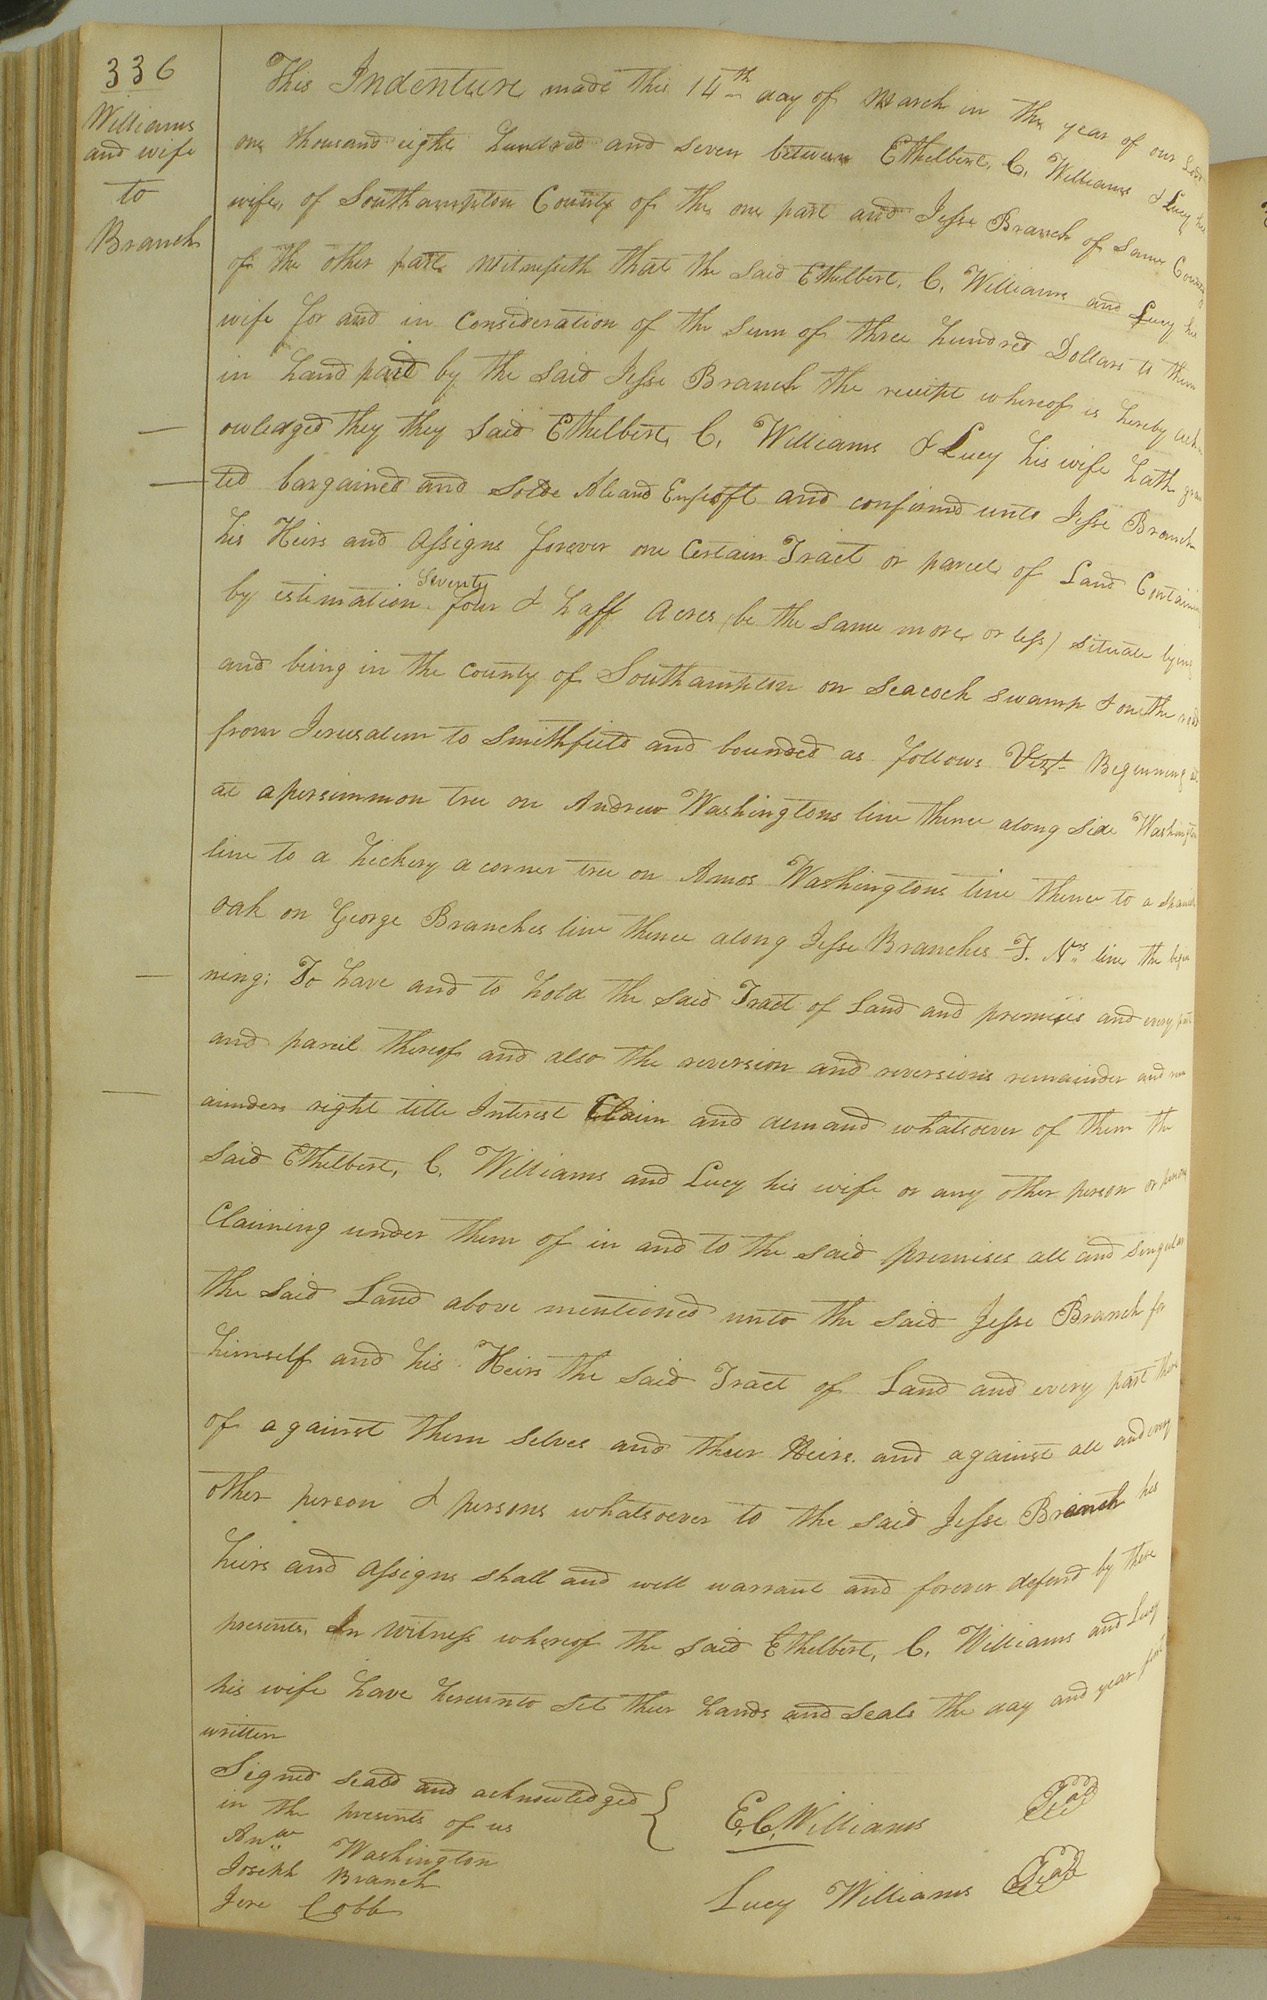 336
Williams
and wife
to
Branch
This Indenture made this 14th day of March in the year of our Lord
one thousand eight hundred and seven between Ethelbert, C. Williams & Lucy his
wife, of Southampton County of the one part and Jesse Branch of Same County
of the other part Witnesseth that the said Ethelbert, C. Williams and Lucy his
wife for and in Consideration of the Sum of three hundred Dollars to them
in hand paid by the said Jesse Branch the receipt whereof is hereby ack
owledged they they said Ethelbert, C. Williams & Lucy his wife hath gran
ted bargained and Solde Ale and Enfeoft and confirmd unto Jesse Branch
his Heirs and Assigns forever one Certain Tract or parcel of Land Containing
by estimation Seventy four & haff Acres (be the same more or less) situate lying
and being in the County of Southampton on Seacock swamp & on the road
from Jerusalem to Smithfield and bounded as follows Vizt Beginning at
at a persimmon tree on Andrew Washingtons line thence along side Washingtons
line to a hickery a corner tree on Amos Washingtons line thence to a Spanish
oak on George Branches line thence along Jesse Branches F. Nrs line the begin
ning; To have and to hold the said Tract of Land and premisis and every part
and parcil thereof and also the reversion and reversions remainder and rem
ainders right title Interest Claim and demand whatsoever of them the
said Ethelbert, C. Williams and Lucy his wife or any other person or persons
Claiming under them of in and to the said premises all and singular
the said Land above mentioned unto the said Jesse Branch for
himself and his Heirs the said Tract of Land and every part there
of against them selves and their Heirs and against all and every
other person & persons whatsoever to the said Jesse Branch his
heirs and assigns shall and will warrant and forever defend by these
presents, In Witness whereof the said Ethelbert, C. Williams and Lucy
his wife have hereunto set their hands and seals the day and year first
written
Signed seald and acknowledged
in the presents of us
Anw Washington
Joseph Branch
Jere Cobb
E. C. Williams Seal
Lucy Williams Seal